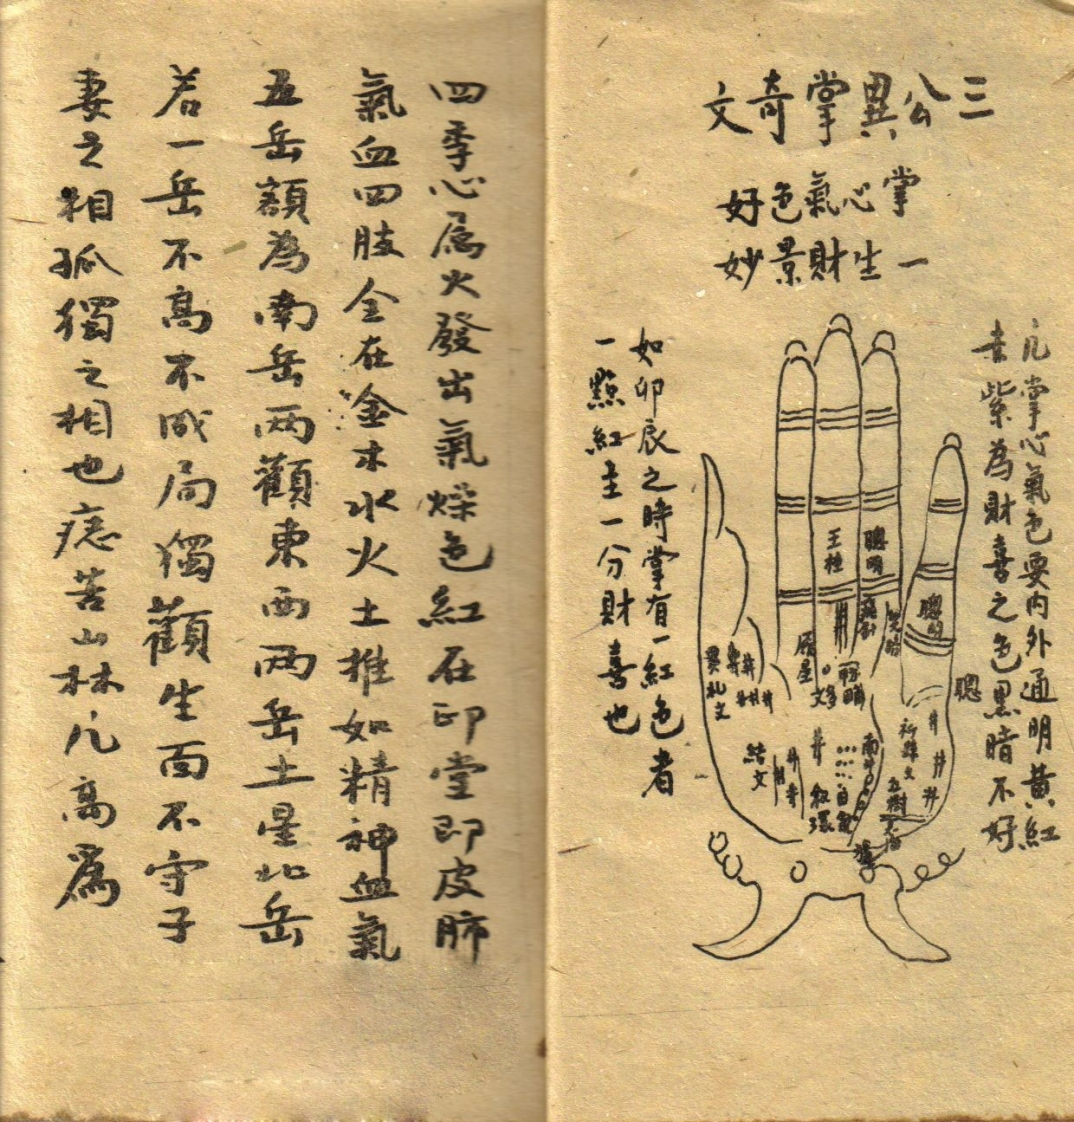 三公異掌奇文
掌心氣色好
一生財景妙
凡掌心氣色要内外通明黃紅
紫為財喜之色黑暗不好
如卯辰之時掌有一紅色者
一點紅主一分財喜也
聰明
聰明
聰
異扎文
結文
四季心属火發出氣燥色紅在印堂即皮肺
氣血四肢全在金木水火土推如精神血氣
五岳額為南岳两顴東西两岳土星北岳
若一岳不高不成局獨顴生面不守子
妻之相孤獨之相也痣苦山林凡高為